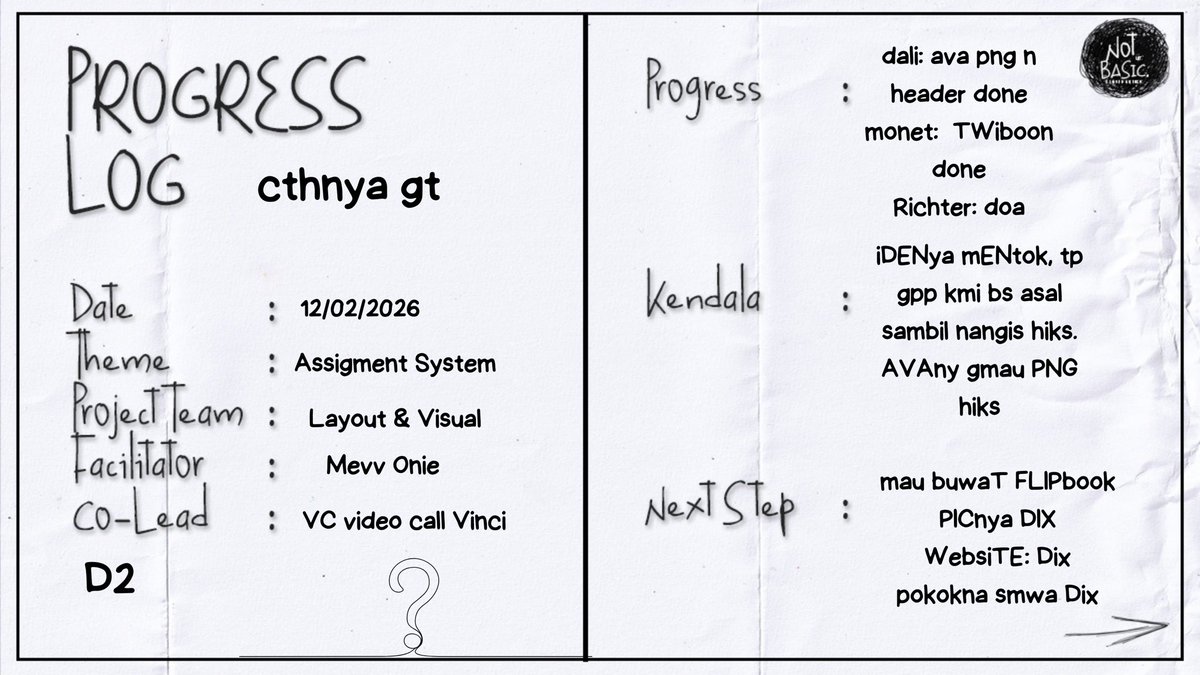 PROGRESS
LOG
cthnya gt
Date : 12/02/2026
Theme : Assigment System
Project Team : Layout & Visual
Facilitator : Mevv Onie
Co-Lead : VC video call Vinci
D2
?
NOT
BASIC.
Progress : dali: ava png n
header done
monet: TWiboon
done
Richter: doa
Kendala : iDENya mENtok, tp
gpp kmi bs asal
sambil nangis hiks.
AVAny gmau PNG
hiks
Next Step : mau buwaT FLIPbook
PICnya DIX
WebsiTE: Dix
pokokna smwa Dix